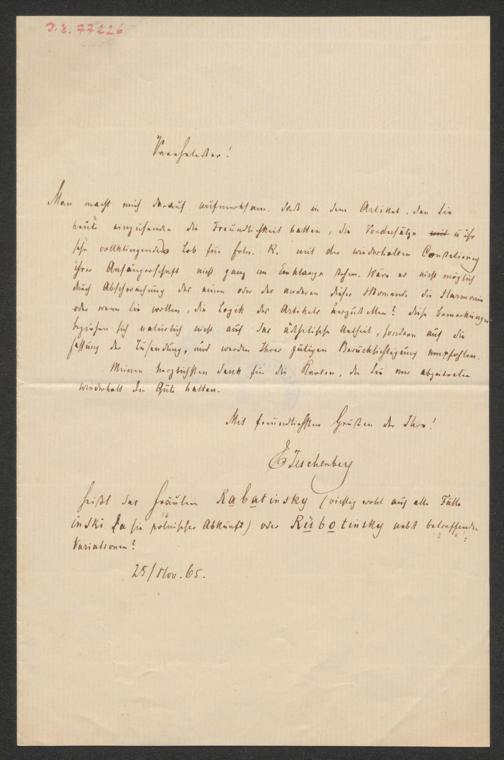 I. N. 77226
Verehrtester!
Man macht mich darauf aufmerksam, daß in dem Artikel, den Sie
heute einzusenden die Freundlichkeit hatten, die Vordersätze mit u ihr
sehr vollklingendes Lob für Frln. R. mit der wiederholten Constatirung
ihrer Anfängerschaft nicht ganz im Einklange stehen. Wäre es nicht möglich
durch Abschwächung des einen oder des anderen dieser Momente die Harmonie
oder wenn Sie wollen, die Logik des Artikels herzustellen? Diese Bemerkungen
beziehen sich natürlich nicht auf das ästhetische Urtheil, sondern auf die
Fassung der Zusendung, und werden Ihrer gütigen Berücksichtigung empfohlen.
Meinen herzlichsten Dank für die Karten, die Sie mir abzutreten
wiederholt die Güte hatten.
Mit freundlichsten Grüßen der Ihre!
ETeschenberg
Heißt das Fräulein Rabatinsky (richtig wohl auf alle Fälle
inski da sie polnischer Abkunft) oder Rubotinsky nebst betreffenden
Variationen?
25/Nov. 65.